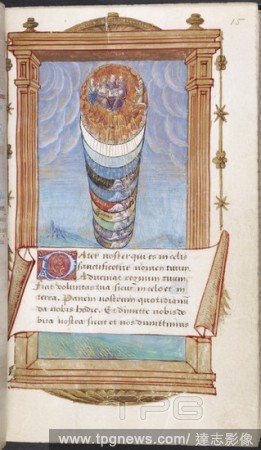 15
Pater noster qui es in celis
sanctificetur nomen tuum.
Adveniat regnum tuum.
Fiat voluntas tua sicut in celo et in
terra. Panem nostrum quotidianū
da nobis hodie. Et dimitte nobis de
bita nostra sicut et nos dimittimus
TPG
www.tpgnews.com/ 達志影像